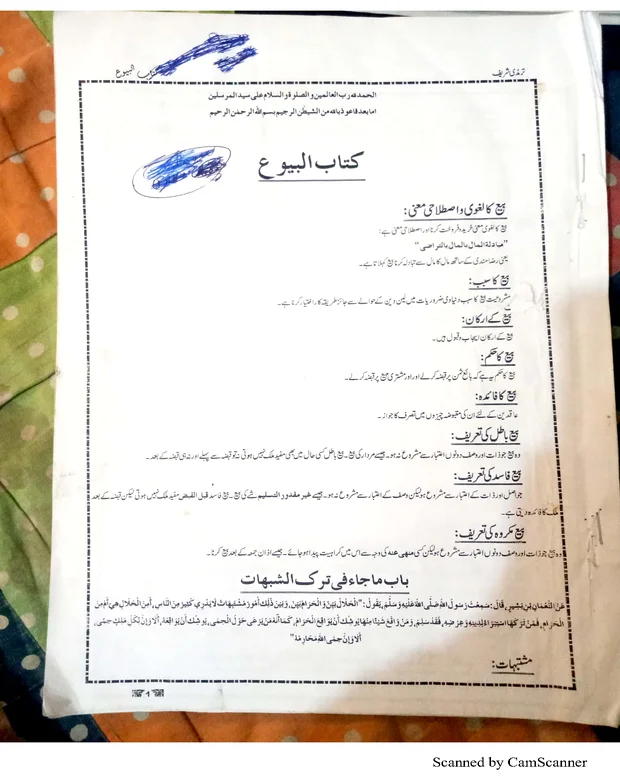 ترمذی شریف
کتاب البیوع
الحمدللہ رب العالمین والصلوۃ والسلام علی سید المرسلین
اما بعد فاعوذ باللہ من الشیطٰن الرجیم بسم اللہ الرحمٰن الرحیم
کتاب البیوع
بیع کا لغوی واصطلاحی معنی:
بیع کا لغوی معنی خرید وفروخت کرنا اور اصطلاحی معنی ہے:
"مبادلۃ المال بالمال بالتراضی"
یعنی رضامندی کے ساتھ مال کا مال سے تبادلہ کرنا بیع کہلاتا ہے۔
بیع کا سبب:
مشروعیت بیع کا سبب دنیاوی ضروریات میں لین دین کے حوالے سے جائز طریقہ کار اختیار کرنا ہے۔
بیع کے ارکان:
بیع کے ارکان ایجاب وقبول ہیں۔
بیع کا حکم:
بیع کا حکم یہ ہے کہ بائع ثمن پر قبضہ کرلے اور اور مشتری مبیع پر قبضہ کرلے۔
بیع کا فائدہ:
عاقدین کے لئے ان کی مقبوضہ چیزوں میں تصرف کا جواز۔
بیع باطل کی تعریف:
وہ بیع جو ذات اور وصف دونوں اعتبار سے مشروع نہ ہو۔ جیسے مردار کی بیع۔ بیع باطل کسی حال میں بھی مفید ملک نہیں ہوتی نہ تو قبضہ سے پہلے اور نہ ہی قبضہ کے بعد۔
بیع فاسد کی تعریف:
جو اصل اور ذات کے اعتبار سے مشروع ہو لیکن وصف کے اعتبار سے مشروع نہ ہو۔ جیسے غیر مقدور التسلیم شے کی بیع۔ بیع فاسد قبل القبض مفید ملک نہیں ہوتی لیکن قبضہ کے بعد
ملک کا فائدہ دیتی ہے۔
بیع مکروہ کی تعریف:
وہ بیع جو ذات اور وصف دونوں اعتبار سے مشروع ہو لیکن کسی منھی عنہ کی وجہ سے اس میں کراہیت پیدا ہو جائے۔ جیسے اذان جمعہ کے بعد بیع کرنا۔
باب ماجاء فی ترک الشبھات
عَنِ النُّعْمَانِ بْنِ بَشِیرٍ، قَالَ: سَمِعْتُ رَسُولَ اللہِ صَلَّی اللہُ عَلَیْہِ وَسَلَّمَ یَقُولُ: "الْحَلَالُ بَیِّنٌ وَالْحَرَامُ بَیِّنٌ، وَبَیْنَ ذٰلِکَ أُمُورٌ مُشْتَبِھَاتٌ لَا یَدْرِي کَثِیرٌ مِنَ النَّاسِ، أَمِنَ الْحَلَالِ ھِيَ أَمْ مِنَ
الْحَرَامِ، فَمَنْ تَرَکَھَا اسْتِبْرَاءً لِدِینِہِ وَعِرْضِہِ، فَقَدْ سَلِمَ، وَمَنْ وَاقَعَ شَیْئًا مِنْھَا یُوشِکُ أَنْ یُوَاقِعَ الْحَرَامَ، کَمَا أَنَّہُ مَنْ یَرْعٰی حَوْلَ الْحِمٰی، یُوشِکُ أَنْ یُوَاقِعَہُ، أَلَا وَإِنَّ لِکُلِّ مَلِكٍ حِمًی،
أَلَا وَإِنَّ حِمَی اللہِ مَحَارِمُہُ"
مشتبہات:
1
Scanned by CamScanner